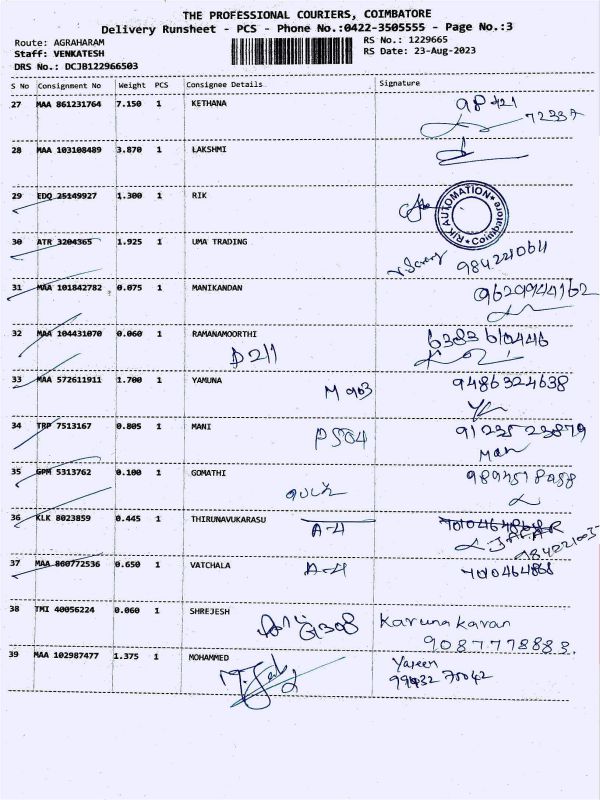 THE PROFESSIONAL COURIERS, COIMBATORE
Delivery Runsheet - PCS - Phone No.:0422-3505555 - Page No.:3
Route: AGRAHARAM
RS No.: 1229665
Staff: VENKATESH
RS Date: 23-Aug-2023
DRS No.: DCJB122966503
S No Consignment No Weight PCS Consignee Details Signature
27 MAA 861231764 7.150 1 KETHANA
28 MAA 103108489 3.870 1 LAKSHMI
29 EDQ 25149927 1.300 1 RIK
RIK AUTOMATION * Coimbatore *
30 ATR 3204365 1.925 1 UMA TRADING
9842210611
31 MAA 101842782 0.075 1 MANIKANDAN
9629944162
32 MAA 104431070 0.060 1 RAMANAMOORTHI
D211 6383610446
33 MAA 572611911 1.700 1 YAMUNA 9486324638
M 903
34 TRP 7513167 0.805 1 MANI 9123523879
P504 Man
35 GPM 5313762 0.100 1 GOMATHI
36 KLK 8023859 0.445 1 THIRUNAVUKARASU
A-4
37 MAA 860772536 0.650 1 VATCHALA A-4
38 TMI 40056224 0.060 1 SHREJESH Karunakaran
9087778883.
39 MAA 102987477 1.375 1 MOHAMMED Yaseen
99432 70042